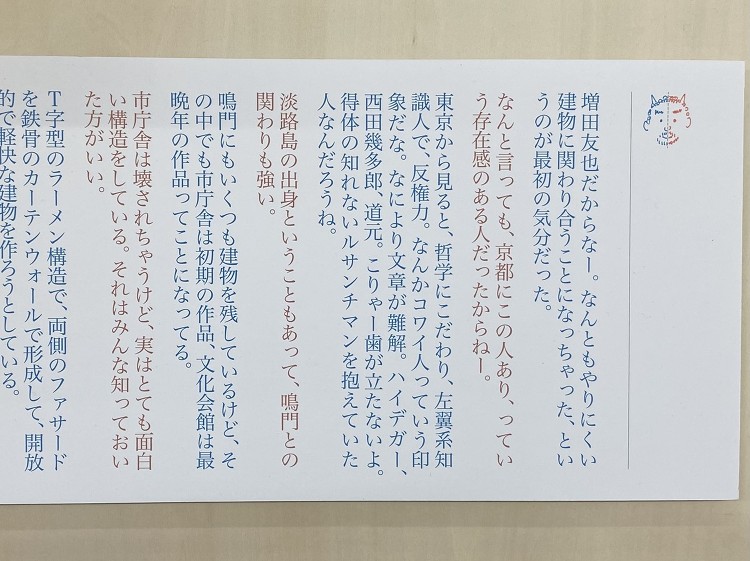 増田友也だからなー。なんともやりにくい
建物に関わり合うことになっちゃった、とい
うのが最初の気分だった。
なんと言っても、京都にこの人あり、ってい
う存在感のある人だったからねー。
東京から見ると、哲学にこだわり、左翼系知
識人で、反権力。なんかコワイ人っていう印
象だな。なにより文章が難解。ハイデガー、
西田幾多郎、道元。こりゃー歯が立たないよ。
得体の知れないルサンチマンを抱えていた
人なんだろうね。
淡路島の出身ということもあって、鳴門との
関わりも強い。
鳴門にもいくつも建物を残しているけど、そ
の中でも市庁舎は初期の作品、文化会館は最
晩年の作品ってことになってる。
市庁舎は壊されちゃうけど、実はとても面白
い構造をしている。それはみんな知っておい
た方がいい。
T字型のラーメン構造で、両側のファサード
を鉄骨のカーテンウォールで形成して、開放
的で軽快な建物を作ろうとしている。